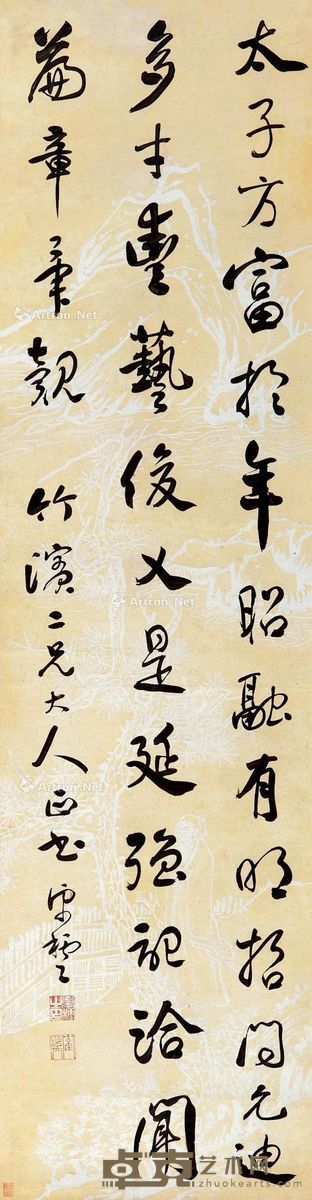 太子方富於年昭融有明哲問允迪
多才豊藝俊乂是延強記洽聞
篇章
竹濱二兄大人正書
Artron.Net
Artron.Net
Artron.Net
Artron.Net
卓克艺术网
zhuokearts.com